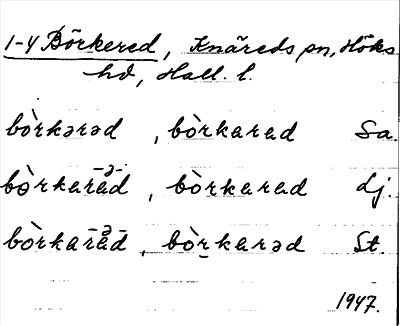 1-4 Börkered, Knäreds sn, Höks
hd, Hall. l.
bòrkərəd , bòrkarad Sa.
bòrkaräd , bòrkarad Lj.
bòrkaräd , bòrkarəd St.
1947.